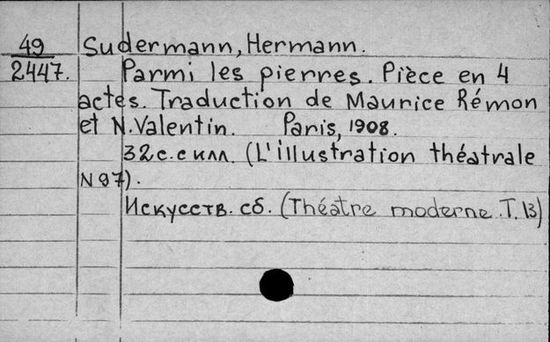 49 Sudermann, Hermann.
2447. Parmi les pierres. Pièce en 4
actes. Traduction de Maurice Rémon
et N. Valentin. Paris, 1908.
32 с. с илл. (L'illustration théatrale
N 97).
Искусств. сб. (Théatre moderne. T. 13)